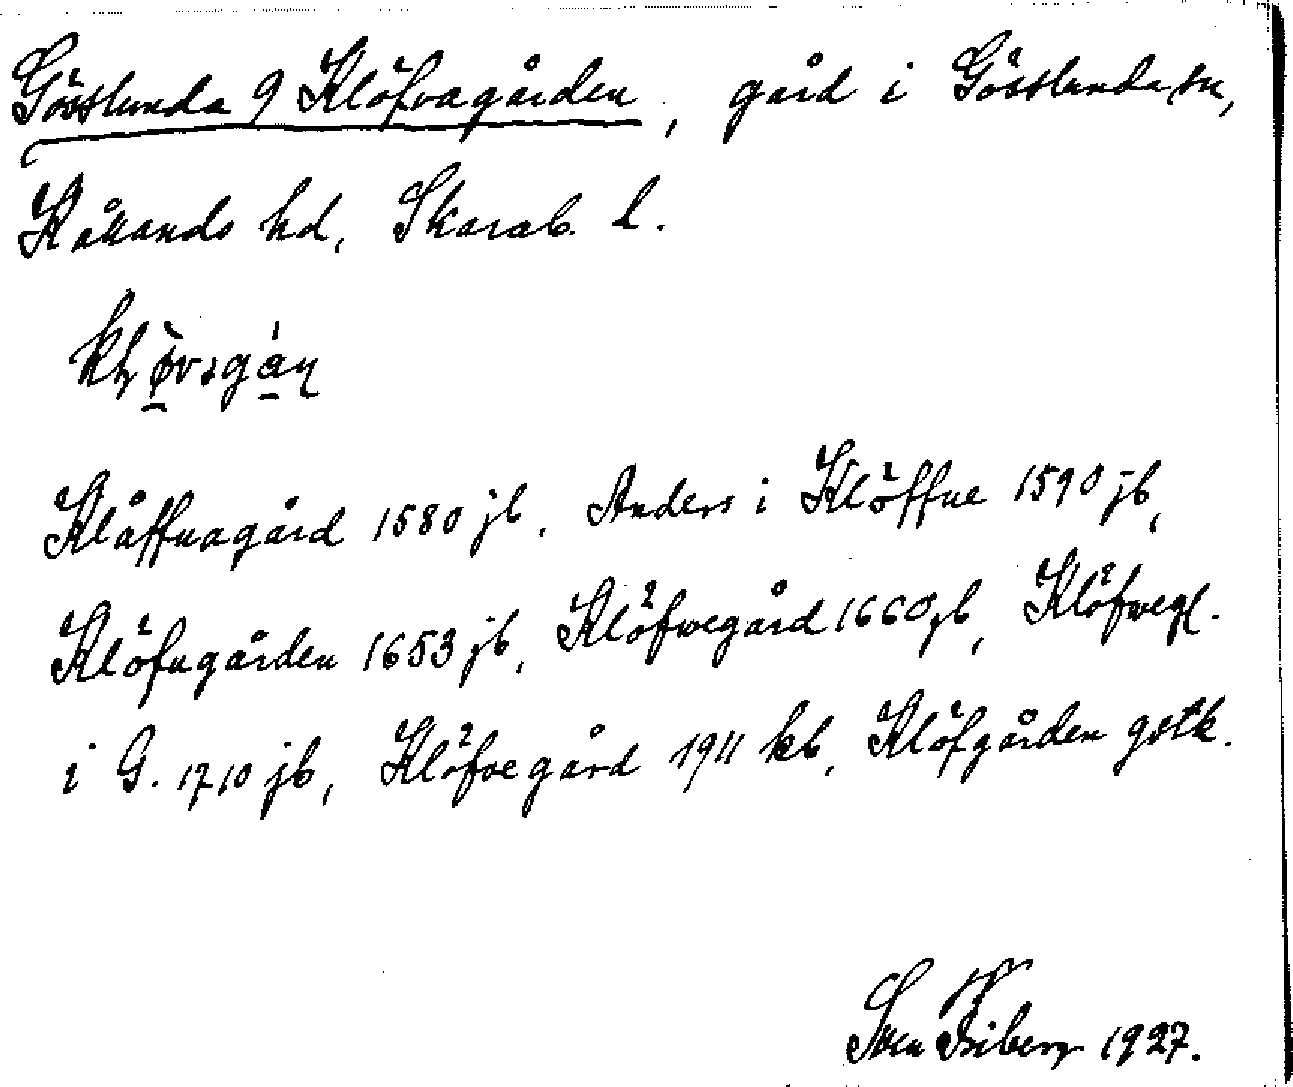 Gösslunda 9 Klöfvagården, gård i Gösslunda sn,
Kållands hd, Skarab. l.
Klåffuagård 1580 jb, Anders i Klöffue 1590 jb,
Klöfugården 1653 jb, Klöfwegård 1660 jb, Klöfwegl.
i G. 1710 jb, Klöfvegård 1911 kb, Klöfgården gstk.
Sven Friberg 1927.